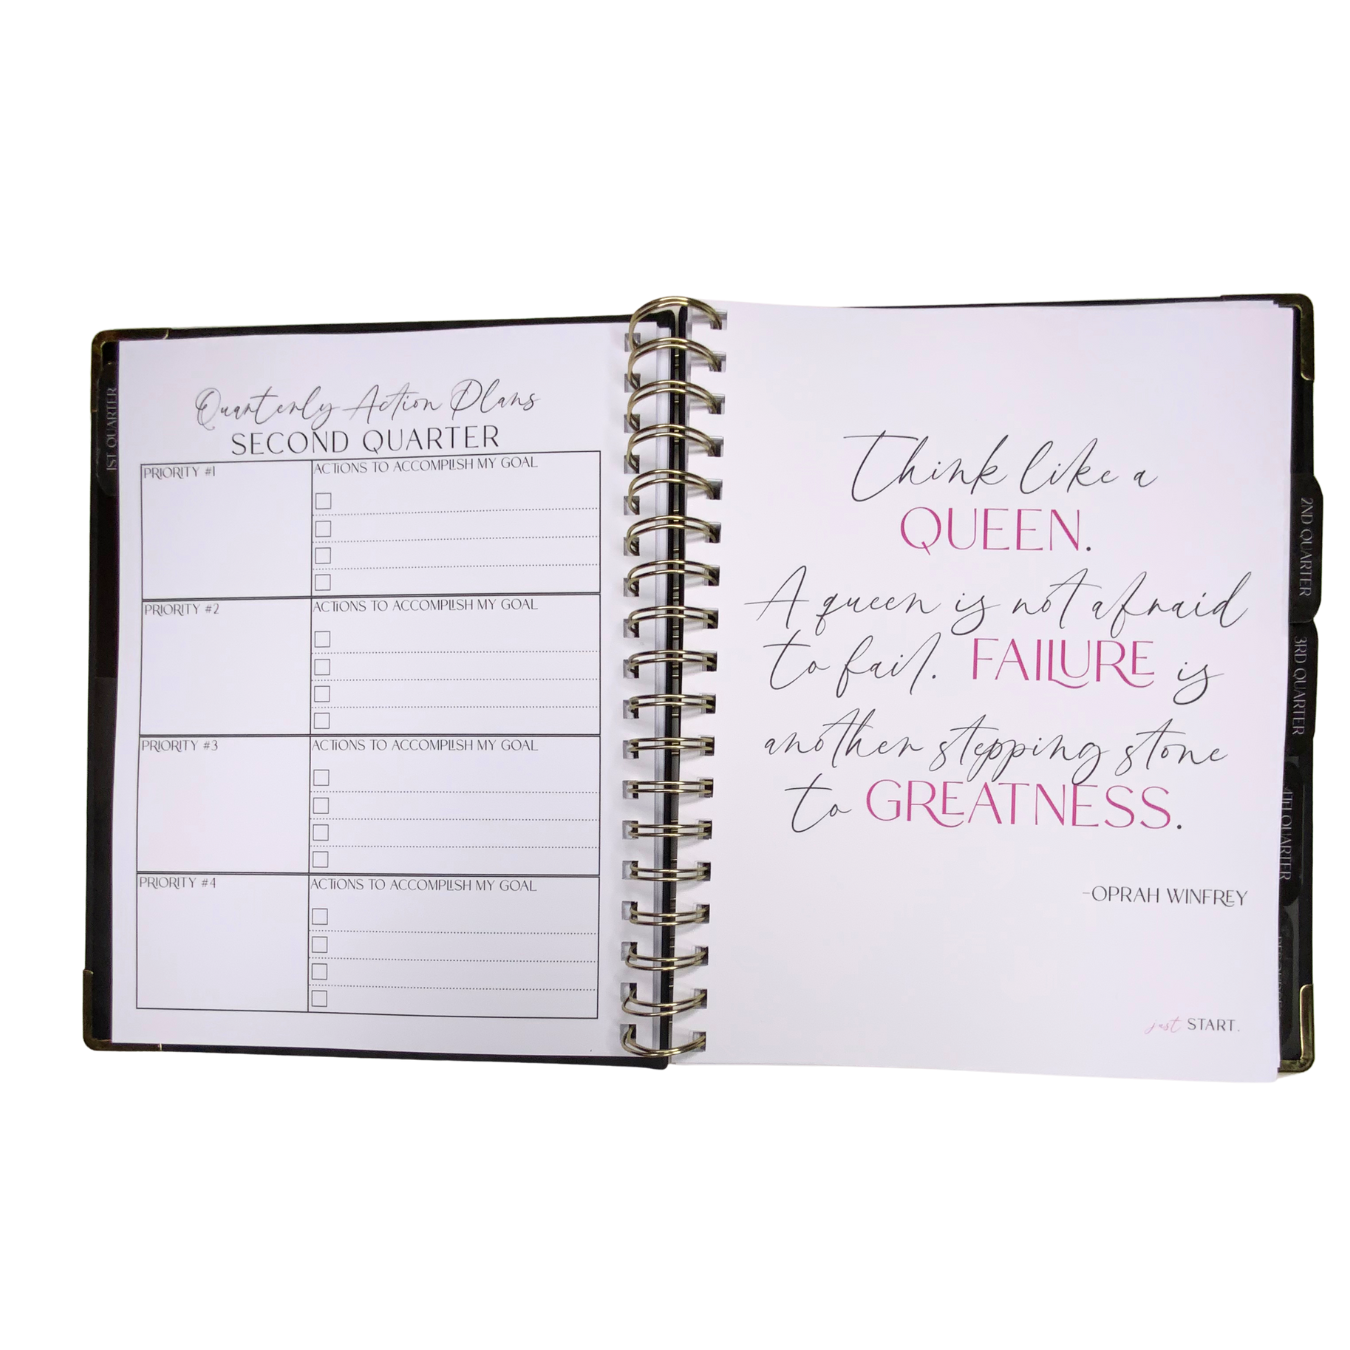 1ST QUARTER
Quarterly Action Plans
SECOND QUARTER
PRIORITY #1
ACTIONS TO ACCOMPLISH MY GOAL
PRIORITY #2
ACTIONS TO ACCOMPLISH MY GOAL
PRIORITY #3
ACTIONS TO ACCOMPLISH MY GOAL
PRIORITY #4
ACTIONS TO ACCOMPLISH MY GOAL
Think like a
QUEEN.
A queen is not afraid
to fail. FAILURE is
another stepping stone
to GREATNESS.
-OPRAH WINFREY
just START.
2ND QUARTER
3RD QUARTER
4TH QUARTER